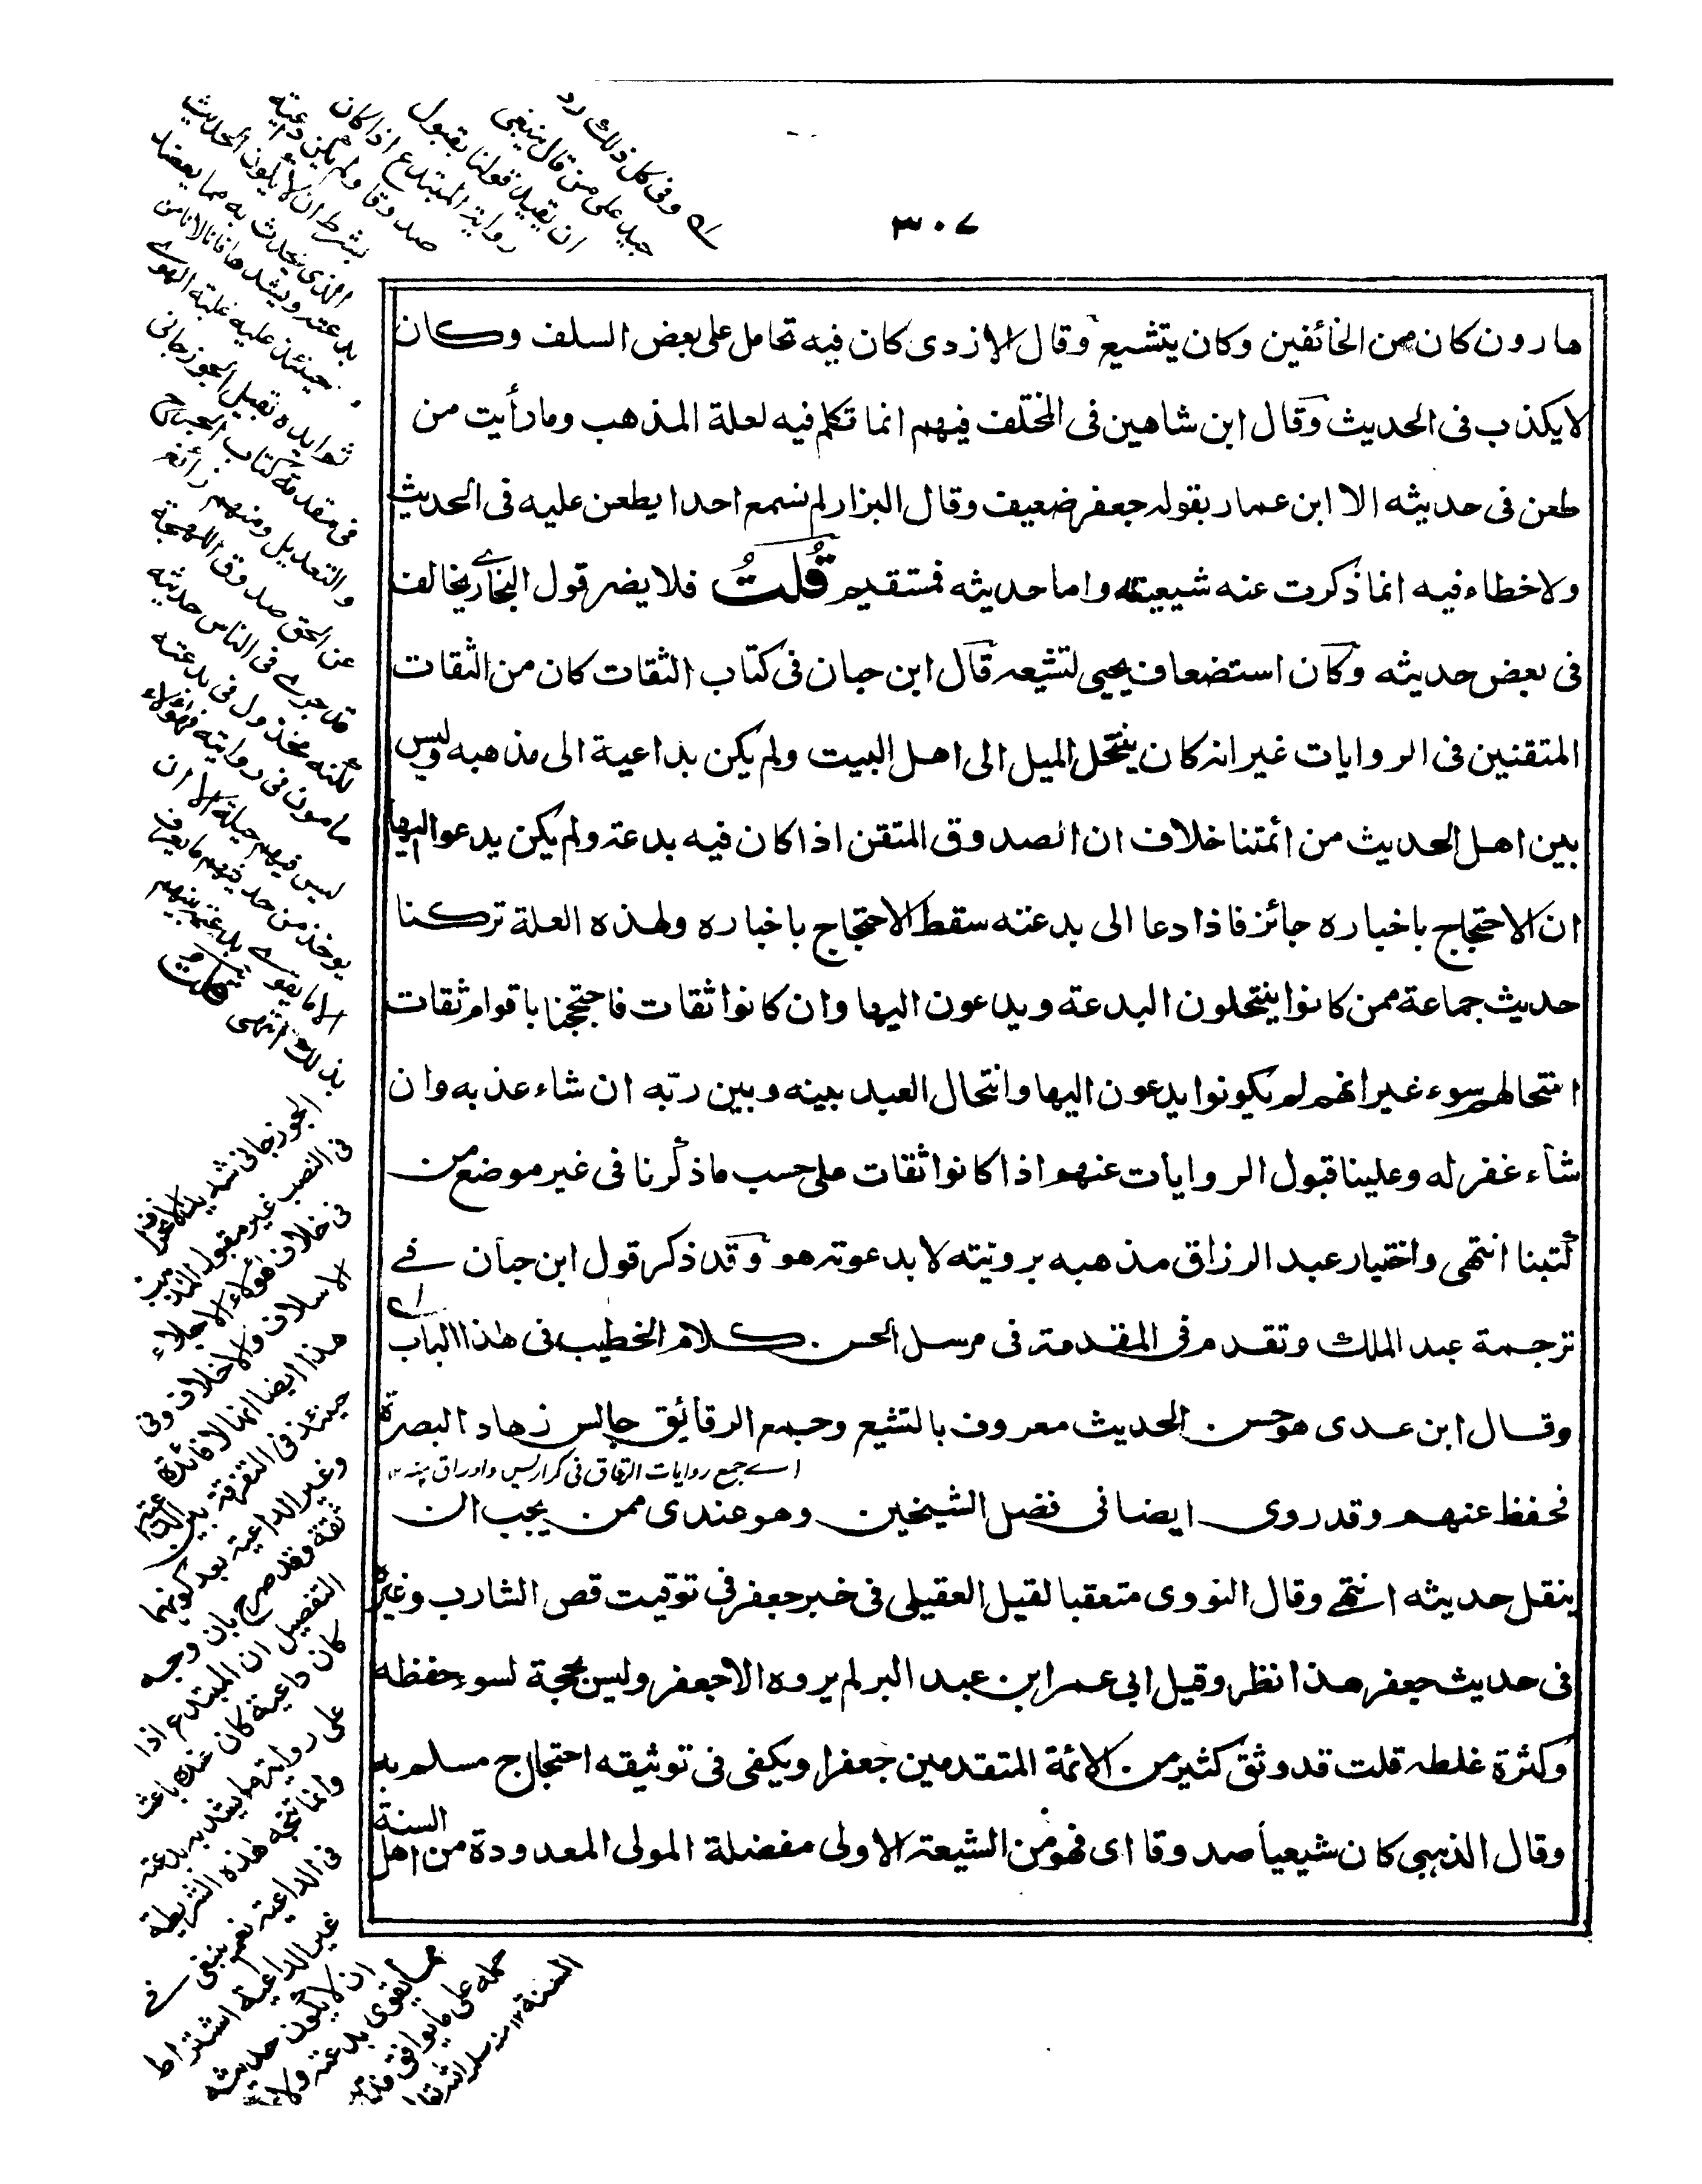 ٣٠٧
هارون كان من الخائفين وكان يتشيع وقال الازدى كان فيه تحامل على بعض السلف وكان
لا يكذب فى الحديث وقال ابن شاهين فى المختلف فيهم انما تكلم فيه لعلة المذهب وما رأيت من
طعن فى حديثه الا ابن عمار بقوله جعفر ضعيف وقال البزار لم نسمع احدا يطعن عليه فى الحديث
ولا خطاء فيه انما ذكرت عنه شيعيته واما حديثه فمستقيم قُلتُ فلا يضر قول البخارے يخالف
فى بعض حديثه وكان استضعاف يحيى لتشيعه قال ابن حبان فى كتاب الثقات كان من الثقات
المتقنين فى الروايات غير انه كان ينتحل الميل الى اهل البيت ولم يكن بداعية الى مذهبه وليس
بين اهل الحديث من أئمتنا خلاف ان الصدوق المتقن اذا كان فيه بدعة ولم يكن يدعوا اليها
ان الاحتجاج باخباره جائز فاذا دعا الى بدعته سقط الاحتجاج باخباره ولهذه العلة تركنا
حديث جماعة ممن كانوا ينتحلون البدعة ويدعون اليها وان كانوا ثقات فاحتججنا باقوام ثقات
انتحالهم سوء غير انهم لم يكونوا يدعون اليها وانتحال العبد بينه وبين ربّه ان شاء عذبه وان
شاء غفر له وعلينا قبول الروايات عنهم اذا كانوا ثقات على حسب ما ذكرنا فى غير موضع من
كتبنا انتهى واختيار عبد الرزاق مذهبه برويته لا بدعوته هو وقد ذكر قول ابن حبان فے
ترجمة عبد الملك وتقدم فى المقدمة فى مرسل الحسن كلام الخطيب فى هذا الباب
وقال ابن عدى هو حسن الحديث معروف بالتشيع وجمع الرقائق جالس زهاد البصرة
اے جمع روايات الرقاق فى كراريس واوراق
فحفظ عنهم وقد روى ايضا فى فضل الشيخين وهو عندى ممن يجب ان
ينقل حديثه انتهے وقال النووى متعقبا لقيل العقيلى فى خبر جعفر فى توقيت قص الشارب وغيره
فى حديث جعفر هذا نظر وقيل ابى عمر ابن عبد البر لم يروه الا جعفر وليس بحجة لسوء حفظه
وكثرة غلطه قلت قد وثق كثير من الائمة المتقدمين جعفرا ويكفى فى توثيقه احتجاج مسلم به
وقال الذهبى كان شيعيا صدوقا اى فهو من الشيعة الاولى مفضلة المولى المعدودة من اهل السنة
وفى كل ذلك رد
جيد على من قال ينبغى
ان تقيد قولنا بقبول
رواية المبتدع اذا كان
صدوقا ولم يكن داعية
بشرط ان لا يكون الحديث
الذى يحدث به مما يعضد
بدعته ويشدها فانا لا نامن
حينئذ عليه غلبة الهوے
ثم ايده بقيل الجوزجانى
فى مقدمة كتاب الجرح
والتعديل ومنهم زائغ
عن الحق صدوق اللهجة
قد جرے فى الناس حديثه
لكنه مخذول فى بدعته
مامون فى روايته فهؤلاء
ليس فيهم حيلة الا ان
يوخذ من حديثهم ما يعرف
الا ما يقوے بدعتهم فيتهم
بذلك انتهى قلت
الجوزجانى شديد الاغراق
فى النصب غير مقبول
فى خلاف هؤلاء الاجلاء
الاسلاف والاخلاف وفى
هذا ايضا انها لا فائدة
حينئذ فى التفرقة بين الداعية
وغير الداعية بعد كونهما
ثقة وقد صرح بان وجه
التفصيل ان المبتدع اذا
كان داعية كان عنده باعث
على رواية ما يشد به بدعته
وانما تتجه هذه الشريطة
فى الداعية نعم ينبغى فے
غير الداعية اشتراط
ان لا يكون حديثه
مما يقوى بدعته
حمله على ما يوافق
السنة ١٢ منه سلمه الله تعالى